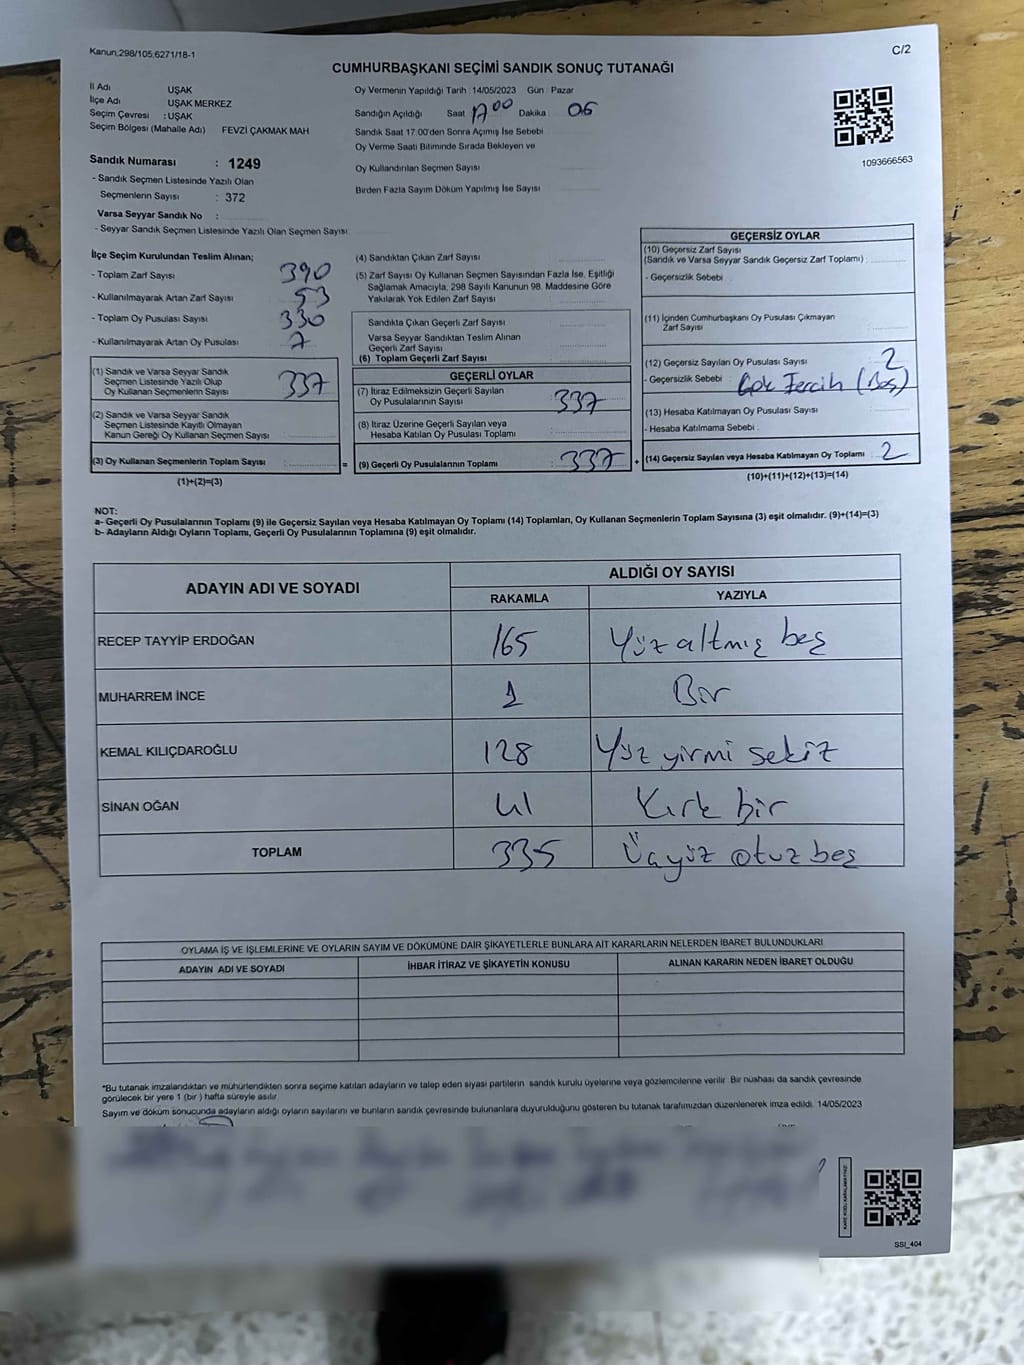 Kanun:298/105;6271/18-1
C/2
CUMHURBAŞKANI SEÇİMİ SANDIK SONUÇ TUTANAĞI
İl Adı UŞAK
İlçe Adı UŞAK MERKEZ
Seçim Çevresi : UŞAK
Seçim Bölgesi (Mahalle Adı) FEVZİ ÇAKMAK MAH
Sandık Numarası : 1249
- Sandık Seçmen Listesinde Yazılı Olan
Seçmenlerin Sayısı : 372
Varsa Seyyar Sandık No :
- Seyyar Sandık Seçmen Listesinde Yazılı Olan Seçmen Sayısı
Oy Vermenin Yapıldığı Tarih : 14/05/2023 Gün : Pazar
Sandığın Açıldığı Saat 17 00 Dakika : 06
Sandık Saat 17:00'den Sonra Açımış İse Sebebi
Oy Verme Saati Bitiminde Sırada Bekleyen ve
Oy Kullandırılan Seçmen Sayısı
Birden Fazla Sayım Döküm Yapılmış İse Sayısı
1093666563
İlçe Seçim Kurulundan Teslim Alınan;
- Toplam Zarf Sayısı 390
- Kullanılmayarak Artan Zarf Sayısı 53
- Toplam Oy Pusulası Sayısı 330
- Kullanılmayarak Artan Oy Pusulası 7
(1) Sandık ve Varsa Seyyar Sandık
Seçmen Listesinde Yazılı Olup
Oy Kullanan Seçmenlerin Sayısı 337
(2) Sandık ve Varsa Seyyar Sandık
Seçmen Listesinde Kayıtlı Olmayan
Kanun Gereği Oy Kullanan Seçmen Sayısı
(3) Oy Kullanan Seçmenlerin Toplam Sayısı : =
(1)+(2)=(3)
(4) Sandıktan Çıkan Zarf Sayısı
(5) Zarf Sayısı Oy Kullanan Seçmen Sayısından Fazla İse, Eşitliği
Sağlamak Amacıyla, 298 Sayılı Kanunun 98. Maddesine Göre
Yakılarak Yok Edilen Zarf Sayısı
Sandıkta Çıkan Geçerli Zarf Sayısı
Varsa Seyyar Sandıktan Teslim Alınan
Geçerli Zarf Sayısı
(6) Toplam Geçerli Zarf Sayısı
GEÇERLİ OYLAR
(7) İtiraz Edilmeksizin Geçerli Sayılan
Oy Pusulalarının Sayısı 337
(8) İtiraz Üzerine Geçerli Sayılan veya
Hesaba Katılan Oy Pusulası Toplamı
(9) Geçerli Oy Pusulalarının Toplamı 337 +
GEÇERSİZ OYLAR
(10) Geçersiz Zarf Sayısı
(Sandık ve Varsa Seyyar Sandık Geçersiz Zarf Toplamı) :
- Geçersizlik Sebebi
(11) İçinden Cumhurbaşkanı Oy Pusulası Çıkmayan
Zarf Sayısı
(12) Geçersiz Sayılan Oy Pusulası Sayısı 2
- Geçersizlik Sebebi Çok Tercih (Boş)
(13) Hesaba Katılmayan Oy Pusulası Sayısı
- Hesaba Katılmama Sebebi :
(14) Geçersiz Sayılan veya Hesaba Katılmayan Oy Toplamı 2
(10)+(11)+(12)+(13)=(14)
NOT:
a- Geçerli Oy Pusulalarının Toplamı (9) ile Geçersiz Sayılan veya Hesaba Katılmayan Oy Toplamı (14) Toplamları, Oy Kullanan Seçmenlerin Toplam Sayısına (3) eşit olmalıdır. (9)+(14)=(3)
b- Adayların Aldığı Oyların Toplamı, Geçerli Oy Pusulalarının Toplamına (9) eşit olmalıdır.
ADAYIN ADI VE SOYADI ALDIĞI OY SAYISI
RAKAMLA YAZIYLA
RECEP TAYYİP ERDOĞAN 165 Yüz altmış beş
MUHARREM İNCE 1 Bir
KEMAL KILIÇDAROĞLU 128 Yüz yirmi sekiz
SİNAN OĞAN 41 Kırk bir
TOPLAM 335 Üçyüz otuz beş
OYLAMA İŞ VE İŞLEMLERİNE VE OYLARIN SAYIM VE DÖKÜMÜNE DAİR ŞİKAYETLERLE BUNLARA AİT KARARLARIN NELERDEN İBARET BULUNDUKLARI
ADAYIN ADI VE SOYADI İHBAR İTİRAZ VE ŞİKAYETİN KONUSU ALINAN KARARIN NEDEN İBARET OLDUĞU
*Bu tutanak imzalandıktan ve mühürlendikten sonra seçime katılan adayların ve talep eden siyasi partilerin sandık kurulu üyelerine veya gözlemcilerine verilir. Bir nüshası da sandık çevresinde
görülecek bir yere 1 (bir ) hafta süreyle asılır.
Sayım ve döküm sonucunda adayların aldığı oyların sayılarını ve bunların sandık çevresinde bulunanlara duyurulduğunu gösteren bu tutanak tarafımızdan düzenlenerek imza edildi. 14/05/2023
SSI_404